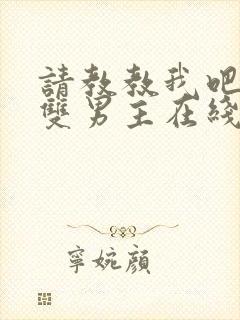 請教教我吧
雙男主在綫
寧婉顔